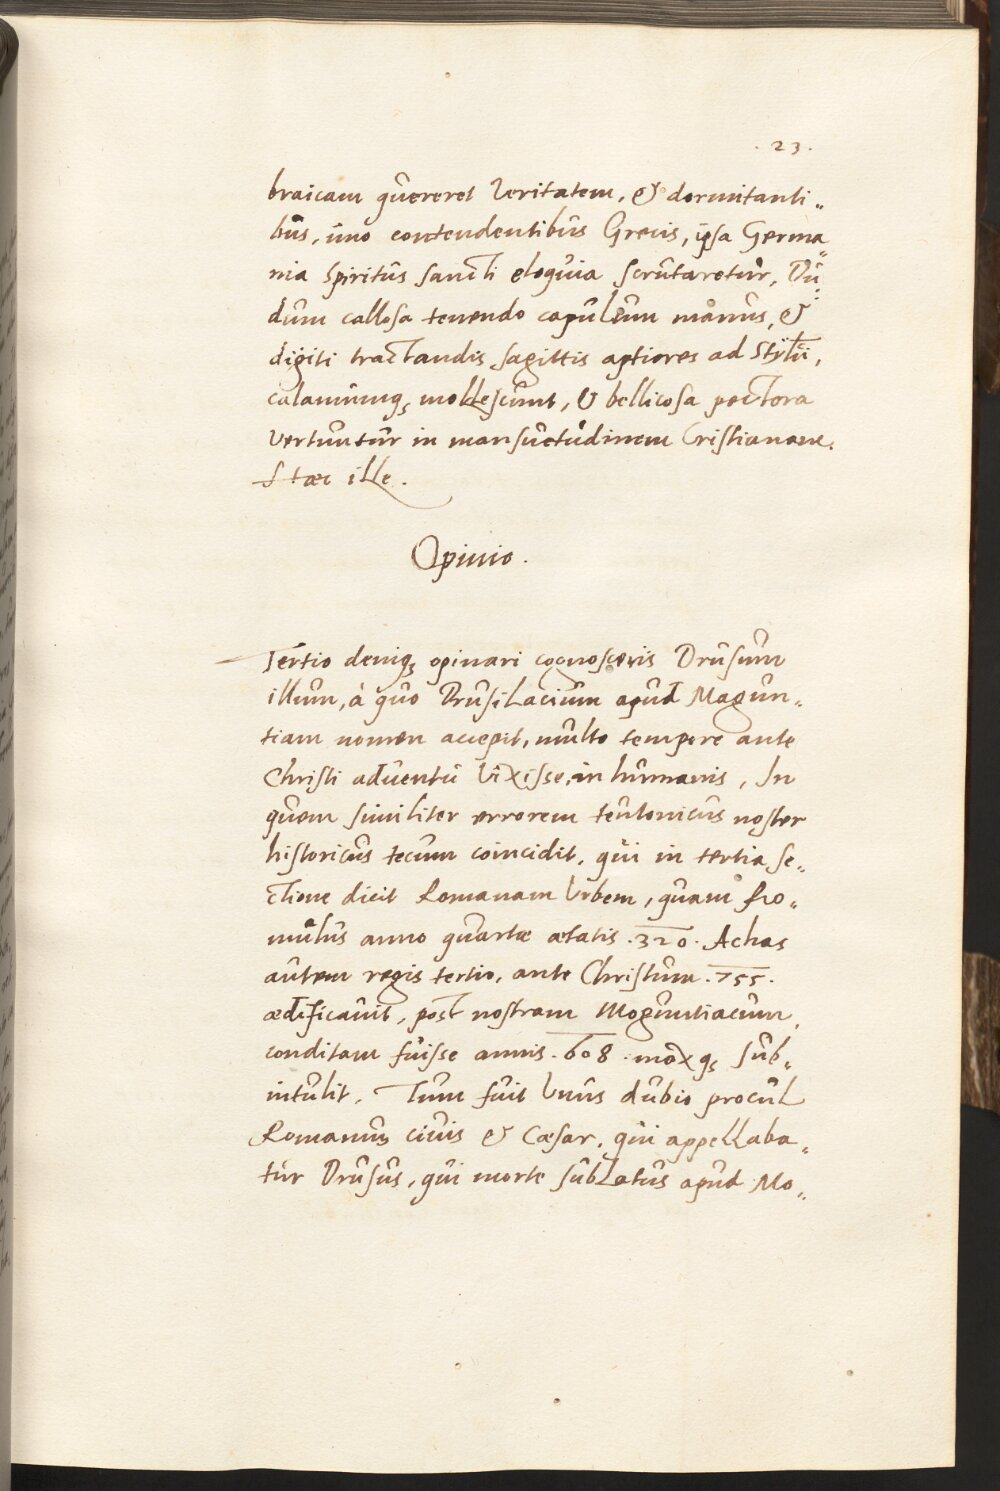 . 23 .
braicam quereret Veritatem, & dormitanti„
bus, imo contendentibus Grecis, ipsa Germa„
nia Spiritus sancti eloquia scrutaretur, Du„
dum callosa tenendo capulum manus, &
digiti tractandis sagittis aptiores ad Stylũ,
calamumq; mollescunt, & bellicosa pectora
vertuntur in mansuetudinem Cristianam.
Hæc ille.
Opinio.
Tertio deniq; opinari cognosceris Drusum
illum, à quo DrusiLacium apud Magun„
tiam nomen accepit, multo tempore ante
Christi adventũ Vixisse, in humanis, In
quem similiter errorem teutonicus noster
historicus tecum coincidit, qui in tertia se„
ctione dicit Romanam Urbem, quam Ro„
mulus anno quartæ ætatis . 320 . Achas
autem regis tertio, ante Christum . 755 .
ædificavit, post nostram Moguntiacum
conditam fuisse annis . 608 . moxq; sub„
intulit. Tum fuit Unus dubio procul
Romanus civis & Cæsar, qui appellaba„
tur Drusus, qui morte subLatus apud Mo„